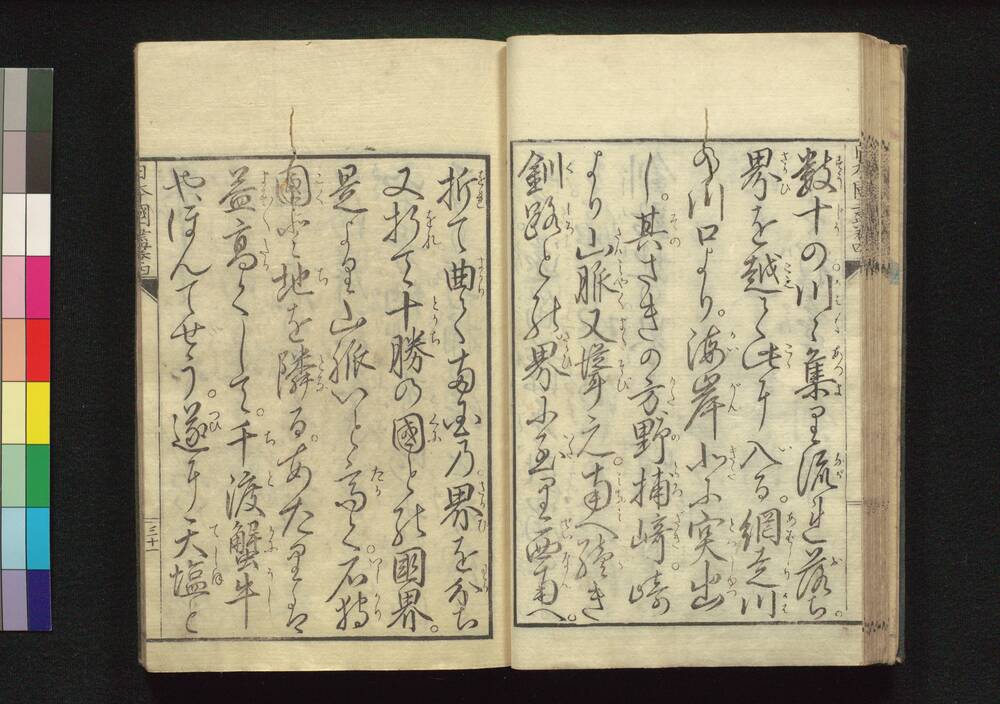 数十の川々集り流れ落ち
界を越て此に入る。網走川
の川口より。海岸北に突出
し。其さきの方野捕崎。崎
より山脈又聳え。南へ続き
釧路との界に至り西南へ。
折て曲り両国の界を分ち
又折て十勝の國との国界。
是より山脈いと高く。石狩
國と地を隣る。あたりは
益高くして。千渡蟹牛
やほんてせう。遂に天塩と
三十一